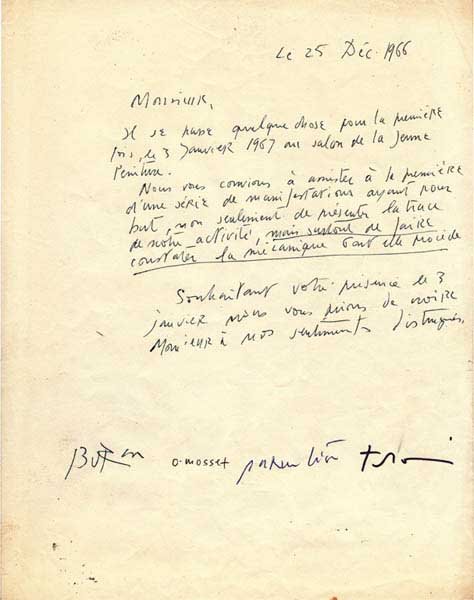 Le 25 Déc. 1966
Monsieur,
Il se passe quelque chose pour la première
fois, le 3 Janvier 1967 au salon de la Jeune
Peinture.
Nous vous convions à assister à la première
d'une série de manifestations ayant pour
but, non seulement de présenter la trace
de notre activité, mais surtout de faire
constater la mécanique dont elle procède
Souhaitant votre présence le 3
janvier nous vous prions de croire
Monsieur à nos sentiments distingués.
Buren o. mosset parmentier toroni